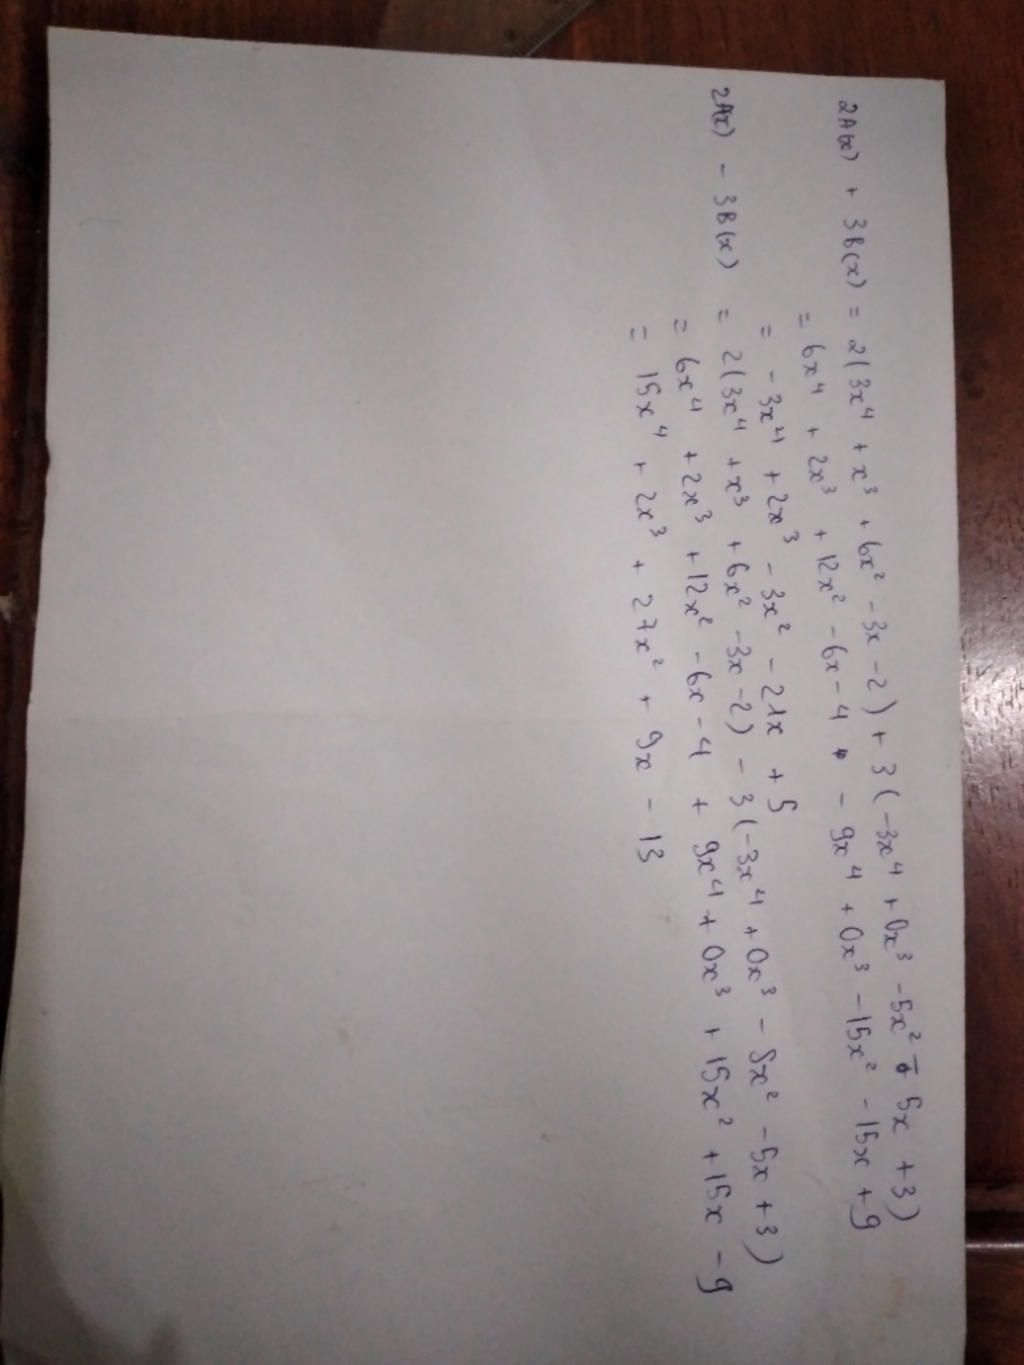 2A(x) + 3B(x) = 2(3x⁴ + x³ + 6x² - 3x - 2) + 3(-3x⁴ + 0x³ - 5x² - 5x + 3)
= 6x⁴ + 2x³ + 12x² - 6x - 4 - 9x⁴ + 0x³ - 15x² - 15x + 9
= -3x⁴ + 2x³ - 3x² - 21x + 5
2A(x) - 3B(x) = 2(3x⁴ + x³ + 6x² - 3x - 2) - 3(-3x⁴ + 0x³ - 5x² - 5x + 3)
= 6x⁴ + 2x³ + 12x² - 6x - 4 + 9x⁴ + 0x³ + 15x² + 15x - 9
= 15x⁴ + 2x³ + 27x² + 9x - 13